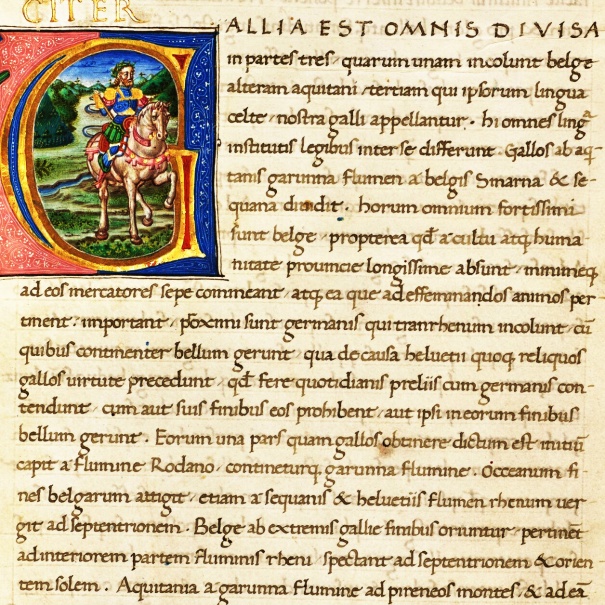 CITER
GALLIA EST OMNIS DIVISA
in partes tres, quarum unam incolunt belge
alteram aquitani, tertiam qui ipsorum lingua
celte, nostra galli appellantur. hi omnes lingᵃ
institutis legibus inter se differunt. Gallos ab aq-
tanis garunna flumen a belgis Smarna & se-
quana dividit. horum omnium fortissimi
sunt belge, propterea qđ a cultu atq; huma-
nitate provincie longissime absunt, minimeq;
ad eos mercatores sepe commeant, atq; ea que ad effeminandos animos per
tinent, important, p̃oximi sunt germanis qui tranrhenum incolunt, cū
quibus continenter bellum gerunt, qua de causa helvetii quoq; reliquos
gallos virtute precedunt, qđ fere quotidianis preliis cum germanis con-
tendunt, cum aut suis finibus eos prohibent, aut ipsi in eorum finibus
bellum gerunt. Eorum una pars quam gallos obtinere dictum est, initiū
capit a flumine Rodano, contineturq; garunna flumine. Occeanum fi-
nes belgarum attigit, etiam a sequanis & helvetiis flumen rhenum ver
git ad septentrionem. Belge ab extremis gallie finibus oriuntur, pertinēt
ad interiorem partem fluminis rheni spectant ad septentrionem & orien
tem solem. Aquitania a garunna flumine ad pireneos montes, & ad eā